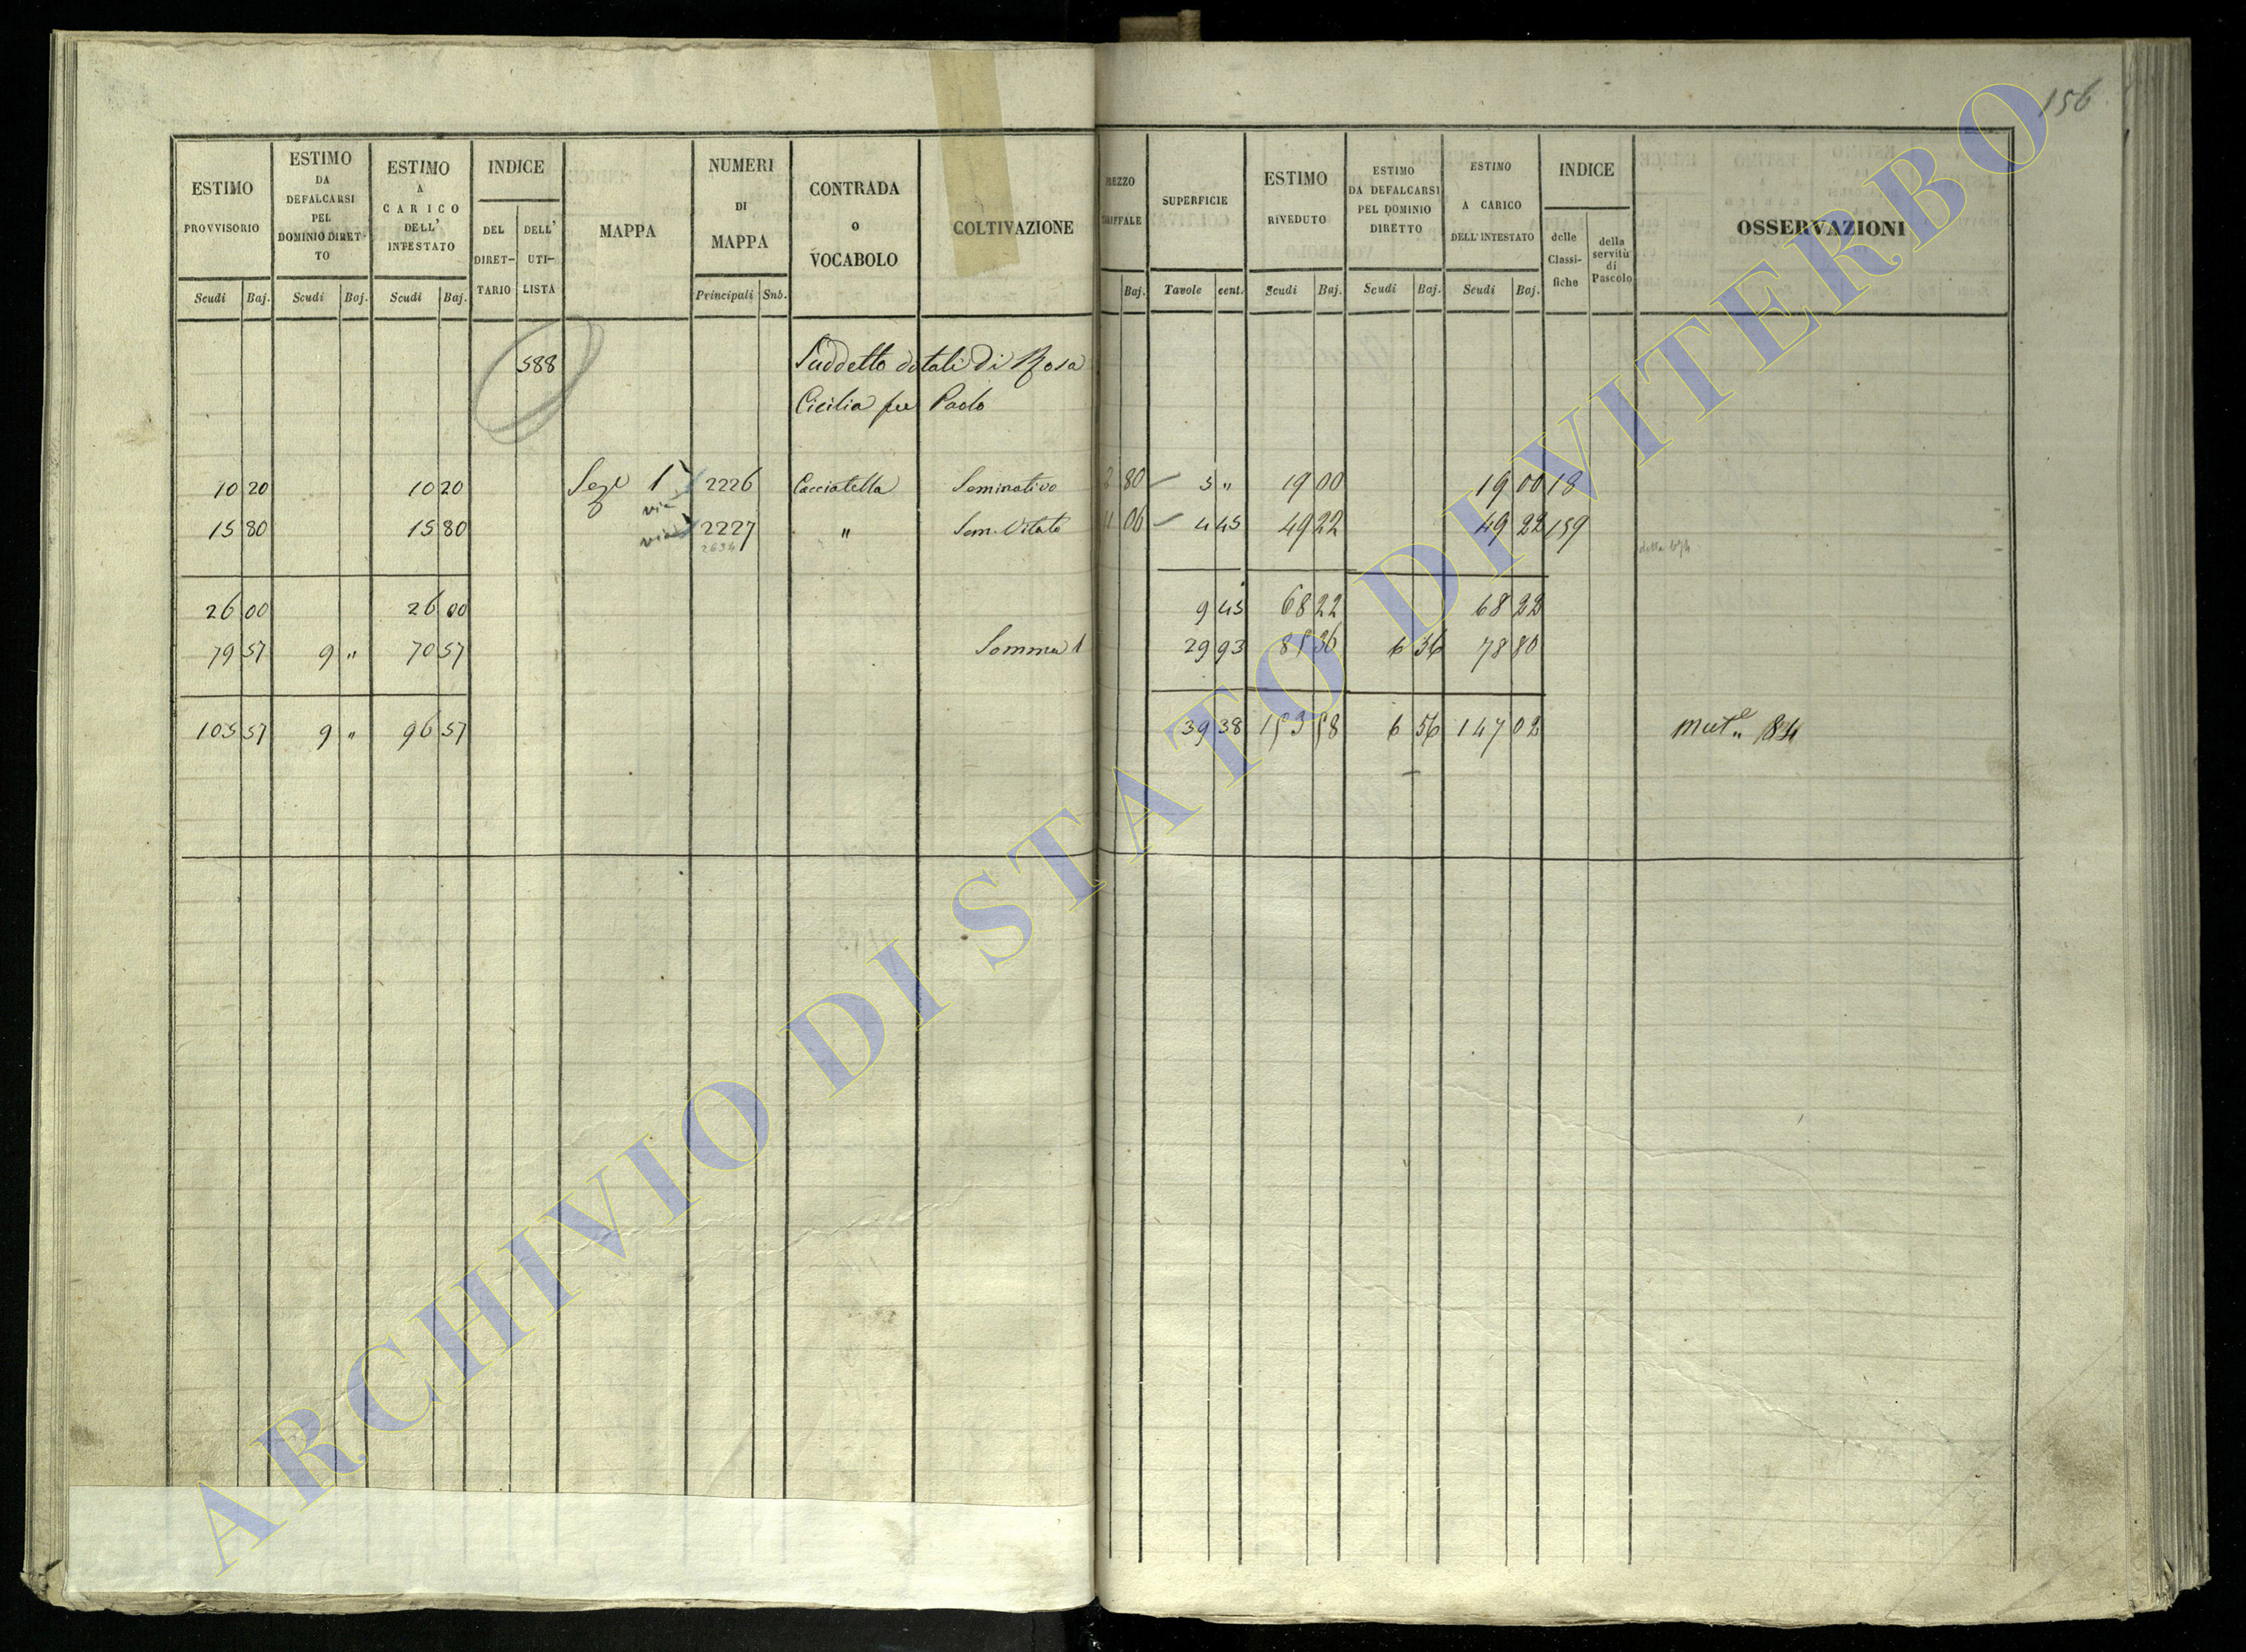 156
ESTIMO PROVVISORIO Scudi Baj.
ESTIMO DA DEFALCARSI PEL DOMINIO DIRET-TO Scudi Baj.
ESTIMO A CARICO DELL' INTESTATO Scudi Baj.
INDICE DEL DIRET-TARIO DELL' UTI-LISTA
MAPPA
NUMERI DI MAPPA Principali Snb.
CONTRADA o VOCABOLO
COLTIVAZIONE
REZZO RIFFALE Baj.
SUPERFICIE Tavole cent.
ESTIMO RIVEDUTO Scudi Baj.
ESTIMO DA DEFALCARSI PEL DOMINIO DIRETTO Scudi Baj.
ESTIMO A CARICO DELL' INTESTATO Scudi Baj.
INDICE delle Classi-fiche della servitù di Pascolo
OSSERVAZIONI
588 Suddetto dotali di Rosa
Cicilia fu Paolo
10 20 10 20 Seze 1 2226 Cacciatella Seminativo 3 80 5 " 19 00 19 00 18
via
15 80 15 80 via 2227 " Sem. Vitato 11 06 4 45 49 22 49 22 159
26 00 26 00 9 45 68 22 68 22
79 57 9 " 70 57 Somma 29 93 85 36 6 56 78 80
105 57 9 " 96 57 39 38 153 58 6 56 147 02 Mut.e 84
ARCHIVIO DI STATO DI VITERBO